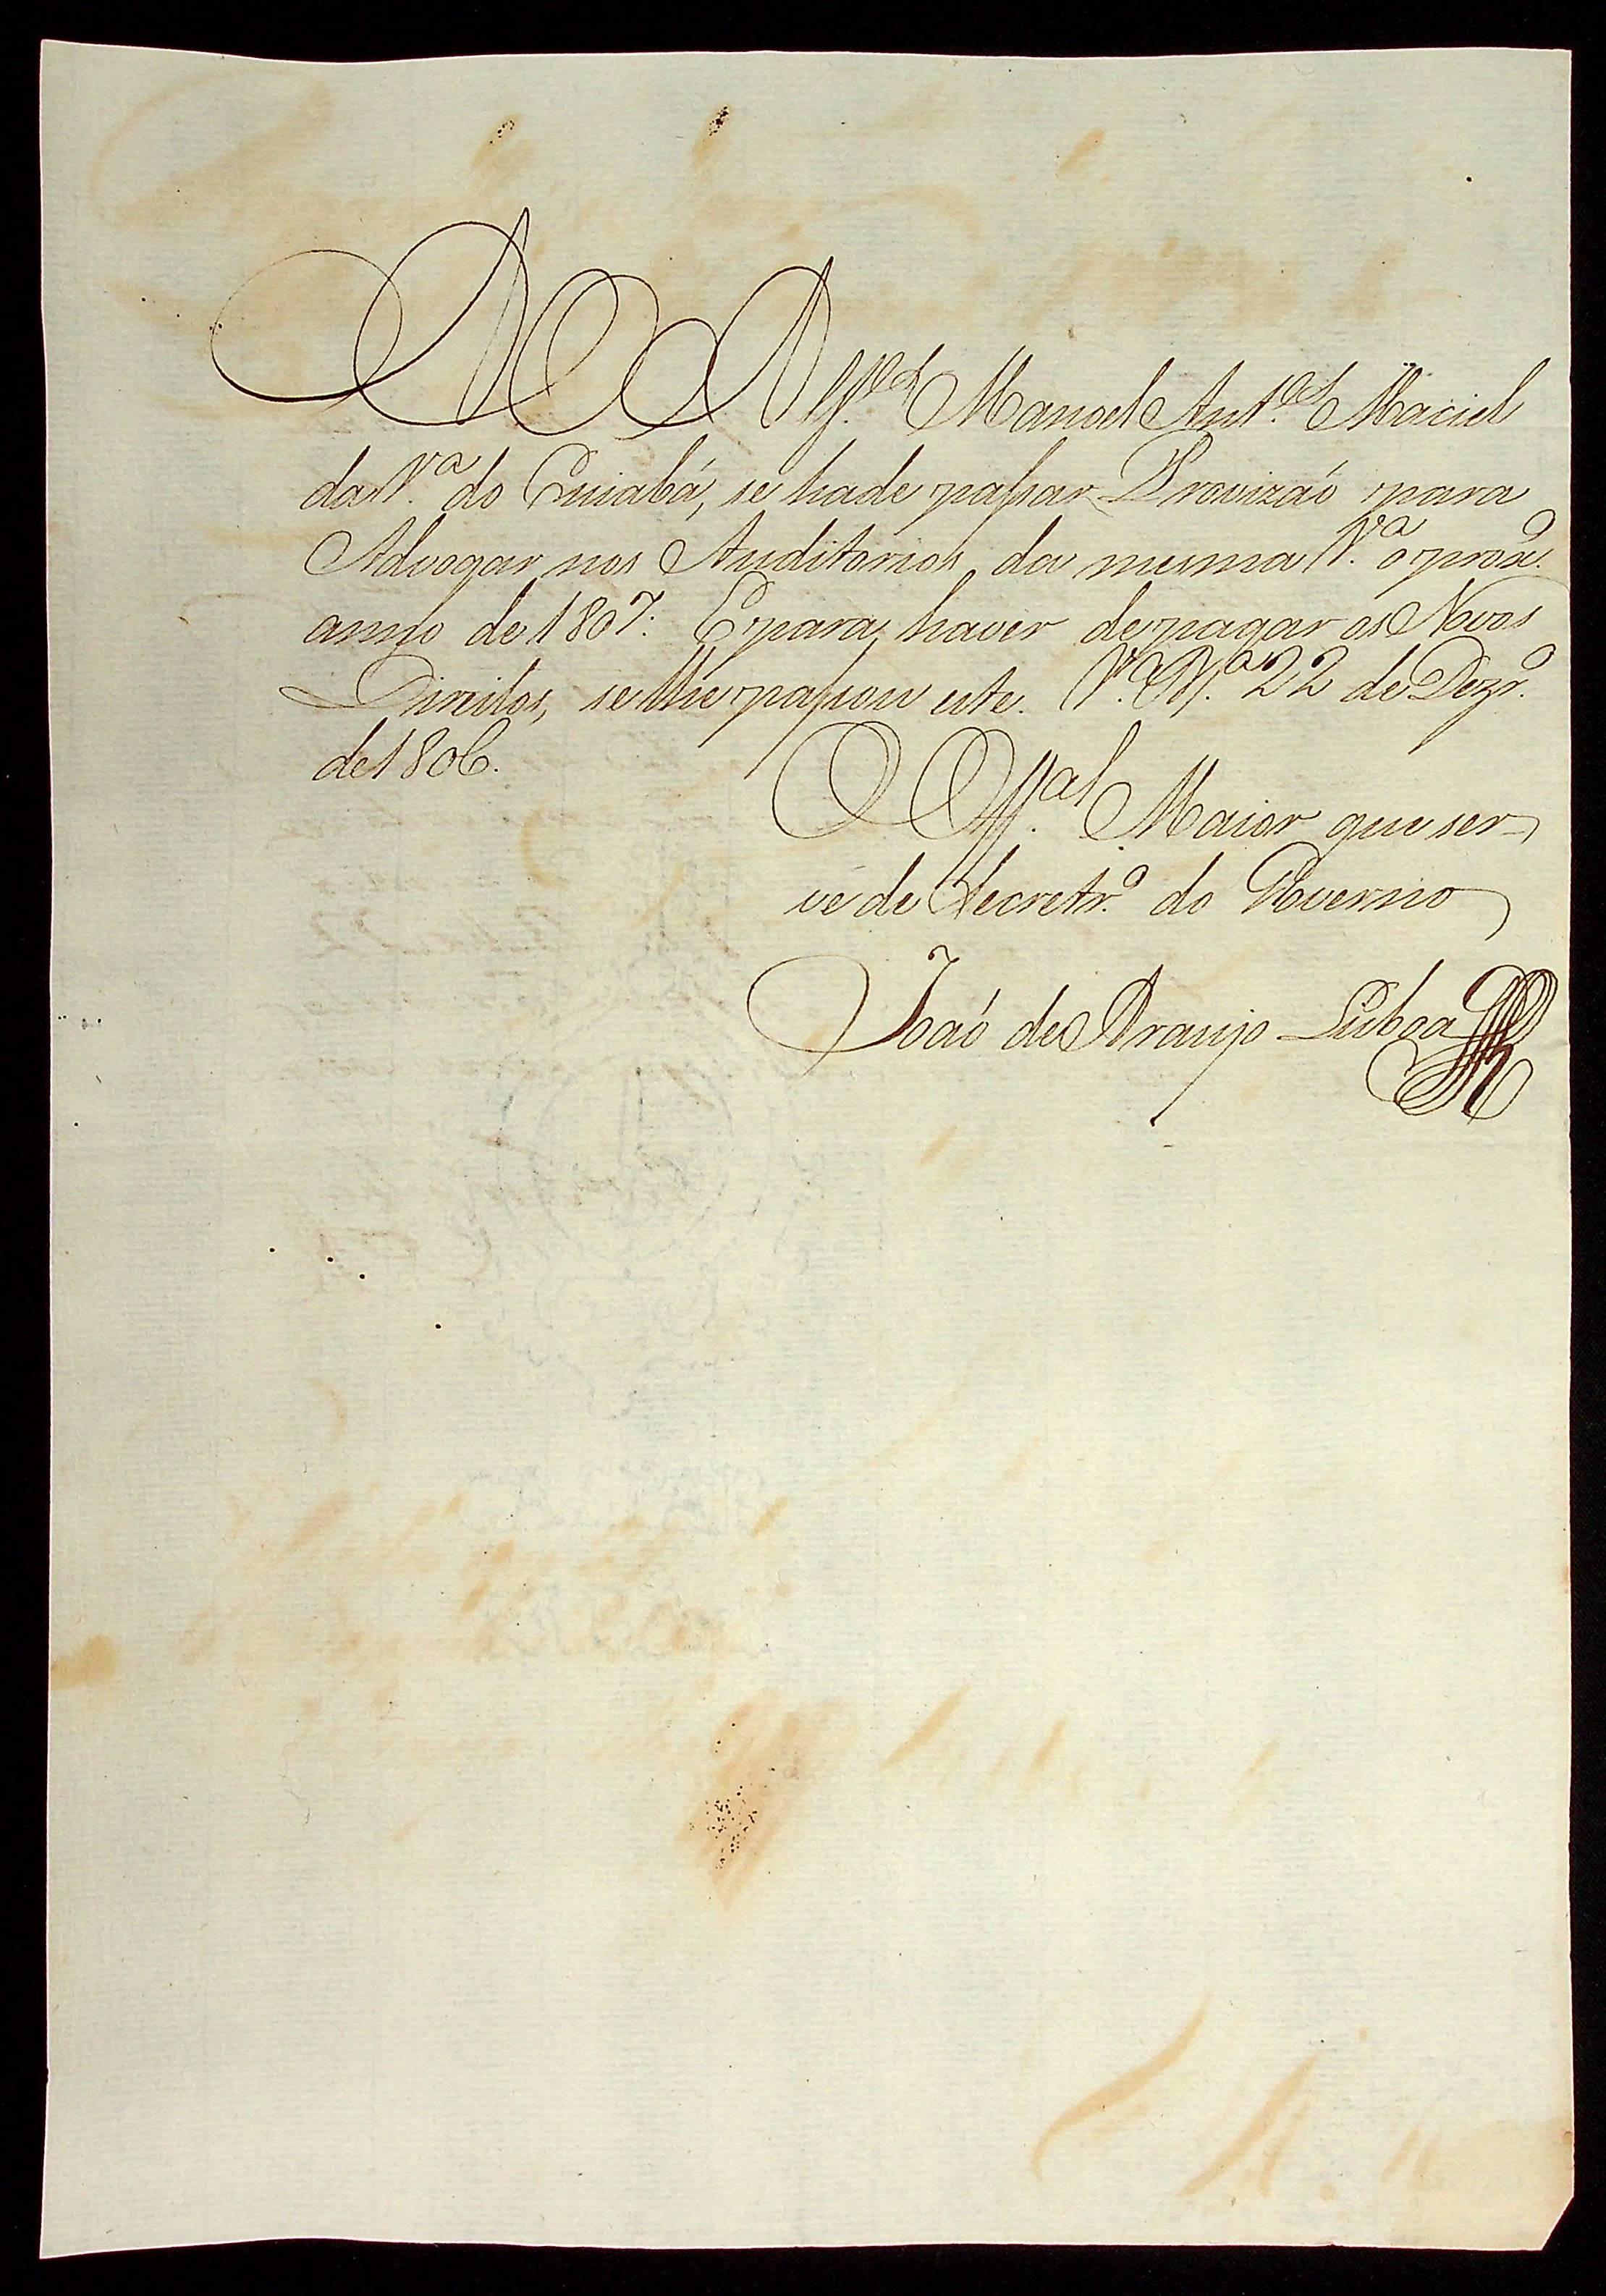 Ao Alf.es Manoel Ant.es Maciel
da V.a do Cuiabá, se hade passar Provizaó para
Advogar nos Auditorios da mesma V.a o prox.o
anno de 1807: E para haver de pagar os Novos
Direitos, se lhe passou este. V.a B.a 22 de Dezr.o
de 1806.
O Off.al Maior que ser-
ve de Secretr.o do Governo
Joaó de Araujo Lisboa